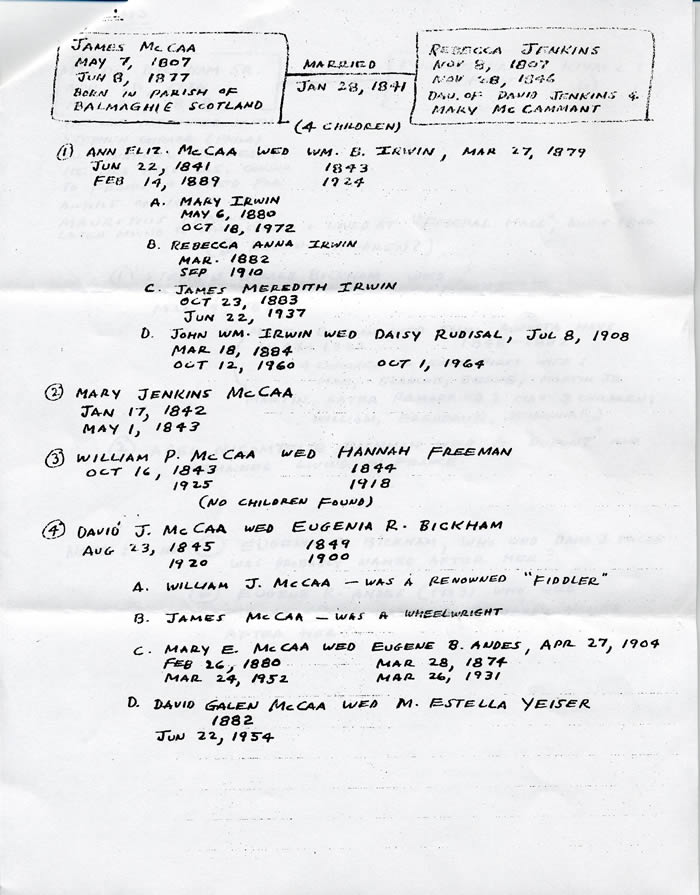 JAMES McCAA
MAY 7, 1807
JUN 8, 1877
BORN IN PARISH OF
BALMAGHIE SCOTLAND
MARRIED
JAN 28, 1841
REBECCA JENKINS
NOV 8, 1807
NOV 28, 1846
DAU. OF DAVID JENKINS &
MARY McCAMMANT
(4 CHILDREN)
① ANN ELIZ. McCAA WED WM. B. IRWIN, MAR 27, 1879
JUN 22, 1841 1843
FEB 14, 1889 1924
A. MARY IRWIN
MAY 6, 1880
OCT 18, 1972
B. REBECCA ANNA IRWIN
MAR. 1882
SEP 1910
C. JAMES MEREDITH IRWIN
OCT 23, 1883
JUN 22, 1937
D. JOHN WM. IRWIN WED DAISY RUDISAL, JUL 8, 1908
MAR 18, 1884
OCT 12, 1960 OCT 1, 1964
② MARY JENKINS McCAA
JAN 17, 1842
MAY 1, 1843
③ WILLIAM P. McCAA WED HANNAH FREEMAN
OCT 16, 1843 1844
1925 1918
(NO CHILDREN FOUND)
④ DAVID J. McCAA WED EUGENIA R. BICKHAM
AUG 23, 1845 1849
1920 1900
A. WILLIAM J. McCAA - WAS A RENOWNED "FIDDLER"
B. JAMES McCAA - WAS A WHEELWRIGHT
C. MARY E. McCAA WED EUGENE B. ANDES, APR 27, 1904
FEB 26, 1880 MAR 28, 1874
MAR 24, 1952 MAR 26, 1931
D. DAVID GALEN McCAA WED M. ESTELLA YEISER
1882
JUN 22, 1954